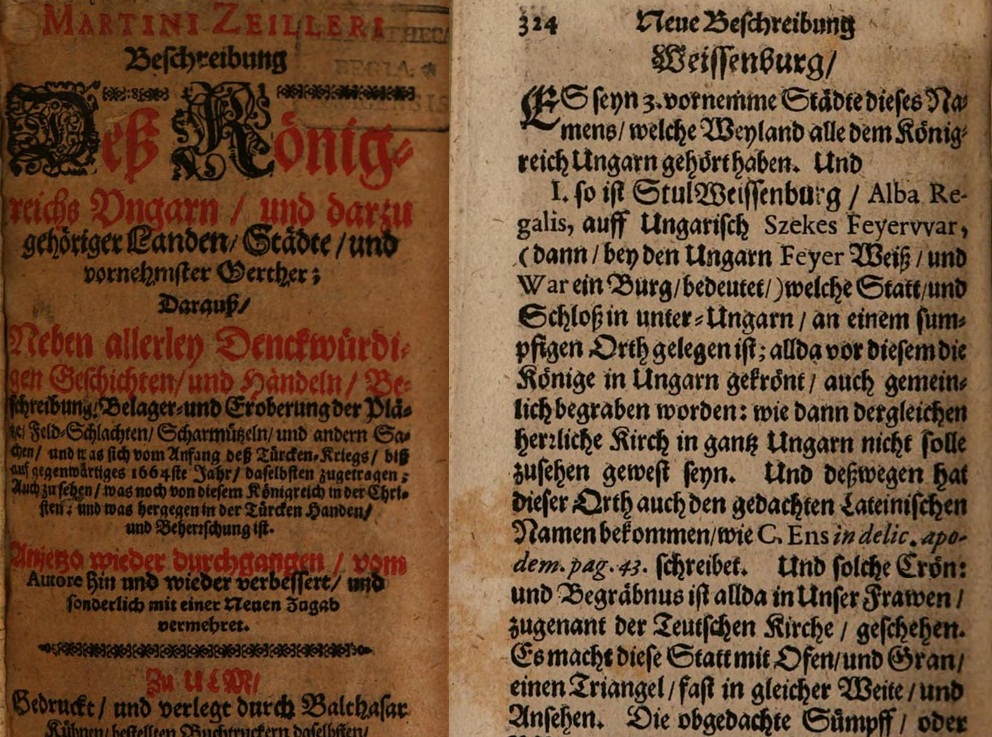 MARTINI ZEILLERI
Beschreibung
Deß König-
reichs Vngarn / und darzu
gehöriger Landen / Städte / und
vornehmster Oerther;
Darauß /
Neben allerley Denckwürdi-
gen Geschichten / und Händeln / Be-
schreibung / Belager- und Eroberung der Plä-
tze / Feld-Schlachten / Scharmützeln / und andern Sa-
chen / und was sich vom Anfang deß Türcken-Kriegs / biß
auf gegenwärtiges 1664ste Jahr / daselbsten zugetragen;
Auch zu sehen / was noch von diesem Königreich in der Chri-
sten; und was hergegen in der Türcken Handen /
und Beherrschung ist.
Anjetzo wieder durchgangen / vom
Autore hin und wieder verbessert / und
sonderlich mit einer Neuen Zugab
vermehret.
Zu ULM /
Gedruckt / und verlegt durch Balthasar
Kühnen / bestellten Buchtruckern daselbsten /
BEGIA.
324 Neue Beschreibung
Weissenburg /
ES seyn 3. vornemme Städte dieses Na-
mens / welche Weyland alle dem König-
reich Ungarn gehört haben. Und
I. so ist StulWeissenburg / Alba Re-
galis, auff Ungarisch Szekes Feyervvar,
(dann / bey den Ungarn Feyer Weiß / und
War ein Burg / bedeutet /) welche Statt / und
Schloß in unter-Ungarn / an einem sum-
pfigen Orth gelegen ist; allda vor diesem die
Könige in Ungarn gekrönt / auch gemein-
lich begraben worden: wie dann dergleichen
herrliche Kirch in gantz Ungarn nicht solle
zusehen gewest seyn. Und deßwegen hat
dieser Orth auch den gedachten Lateinischen
Namen bekommen / wie C. Ens in delic. apo-
dem. pag. 43. schreibet. Und solche Crön:
und Begräbnus ist allda in Unser Frawen /
zugenant der Teutschen Kirche / geschehen.
Es macht diese Statt mit Ofen / und Gran /
einen Triangel / fast in gleicher Weite / und
Ansehen. Die obgedachte Sümpff / oder